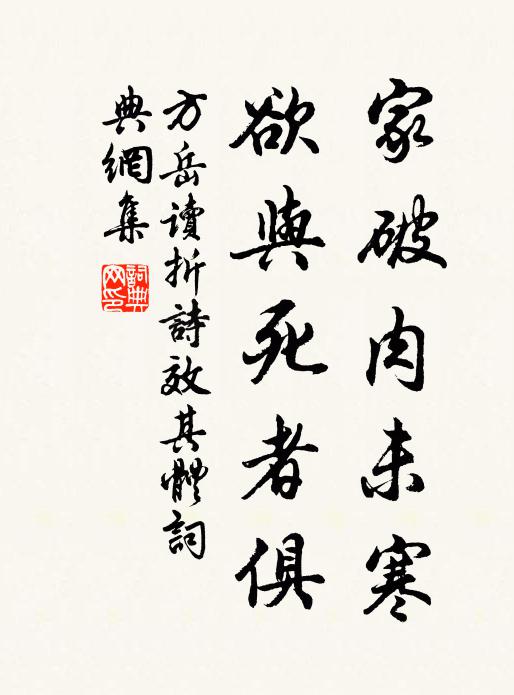 家破肉未寒
欲與死者俱
方岳讀折詩效其體詞
典網集
詞典
网印